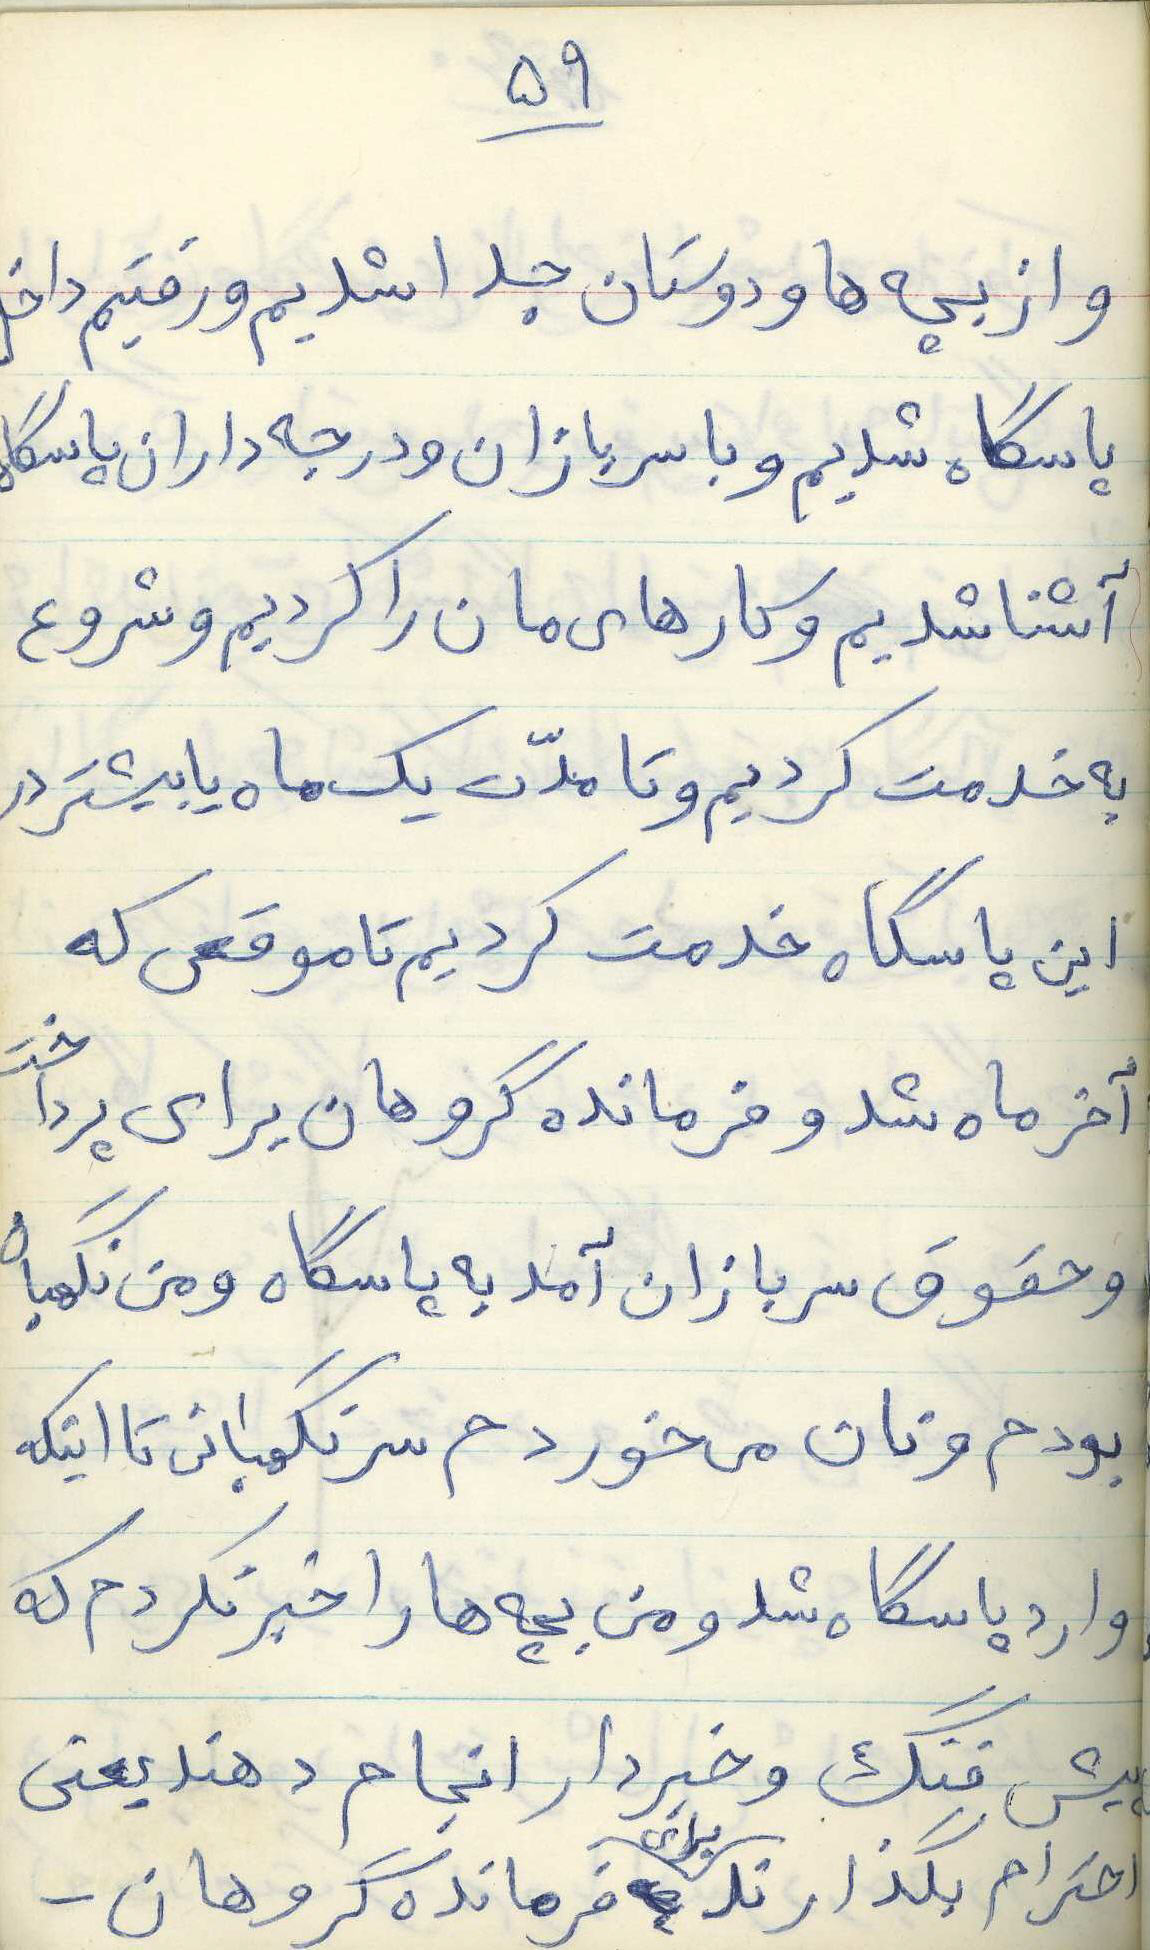 ۵۹
و از بچه ها و دوستان جدا شدیم و رفتیم داخل
پاسگاه شدیم و با سربازان و درجه داران پاسگاه
آشنا شدیم و کارهای مان را کردیم و شروع
به خدمت کردیم و تا مدّت یک ماه یا بیشتر در
این پاسگاه خدمت کردیم تا موقعی که
آخر ماه شد و فرمانده گروهان برای پرداخت
و حقوق سربازان آمد به پاسگاه و من نگهبان
بودم و نان می خوردم سر نگهبانی تا اینکه
وارد پاسگاه شد و من بچه ها را خبر نکردم که
پیش فنگ و خبردار انجام دهند یعنی
احترام بگذارند برای فرمانده گروهان –